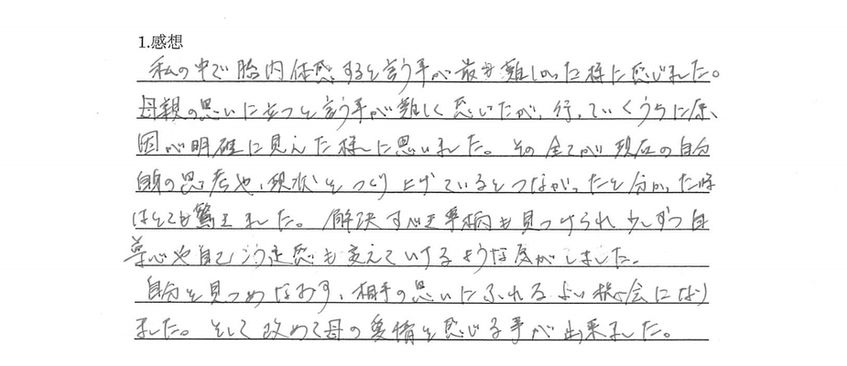 1.感想
私の中で胎内体感すると言う事が最も難しかった様に感じました。
母親の思いに立つと言う事が難しく感じたが、行っていくうちに原
因が明確に見えた様に思いました。その全てが現在の自分
自身の思考や、現状をつくり上げているとつながったと分かった時
はとても驚きました。解決すべき事柄も見つけられ少しずつ自
尊心や自己こう定感も変えていけるような気がしました。
自分を見つめなおす、相手の思いにふれるよい機会になり
ました。そして改めて母の愛情を感じる事が出来ました。